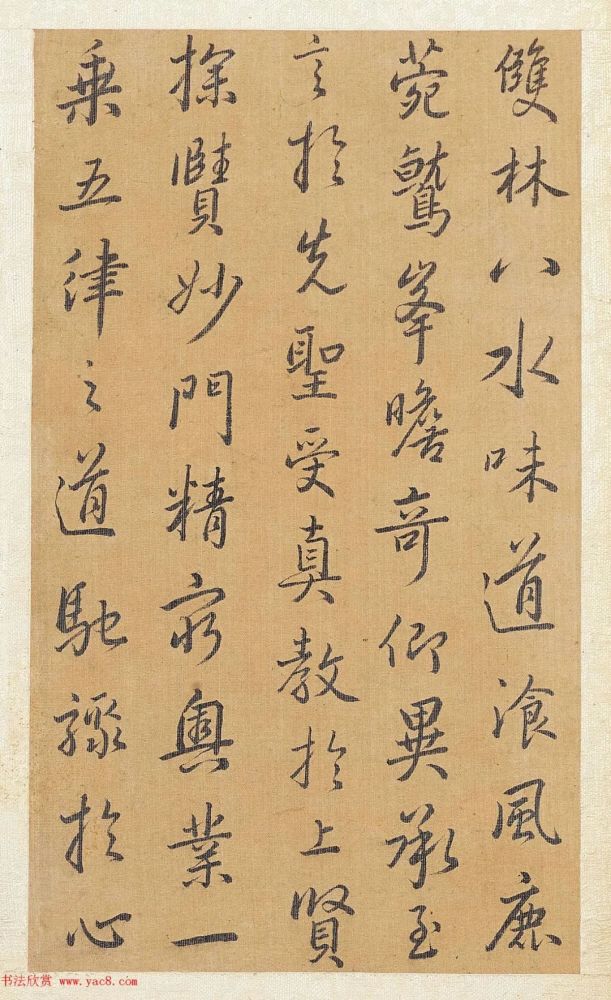 雙林八水味道湌風鹿
菀鷲峯瞻奇仰異承至
言於先聖受真教於上賢
探賾妙門精窮奧業一
乘五律之道馳驟於心
书法欣赏 www.yac8.com